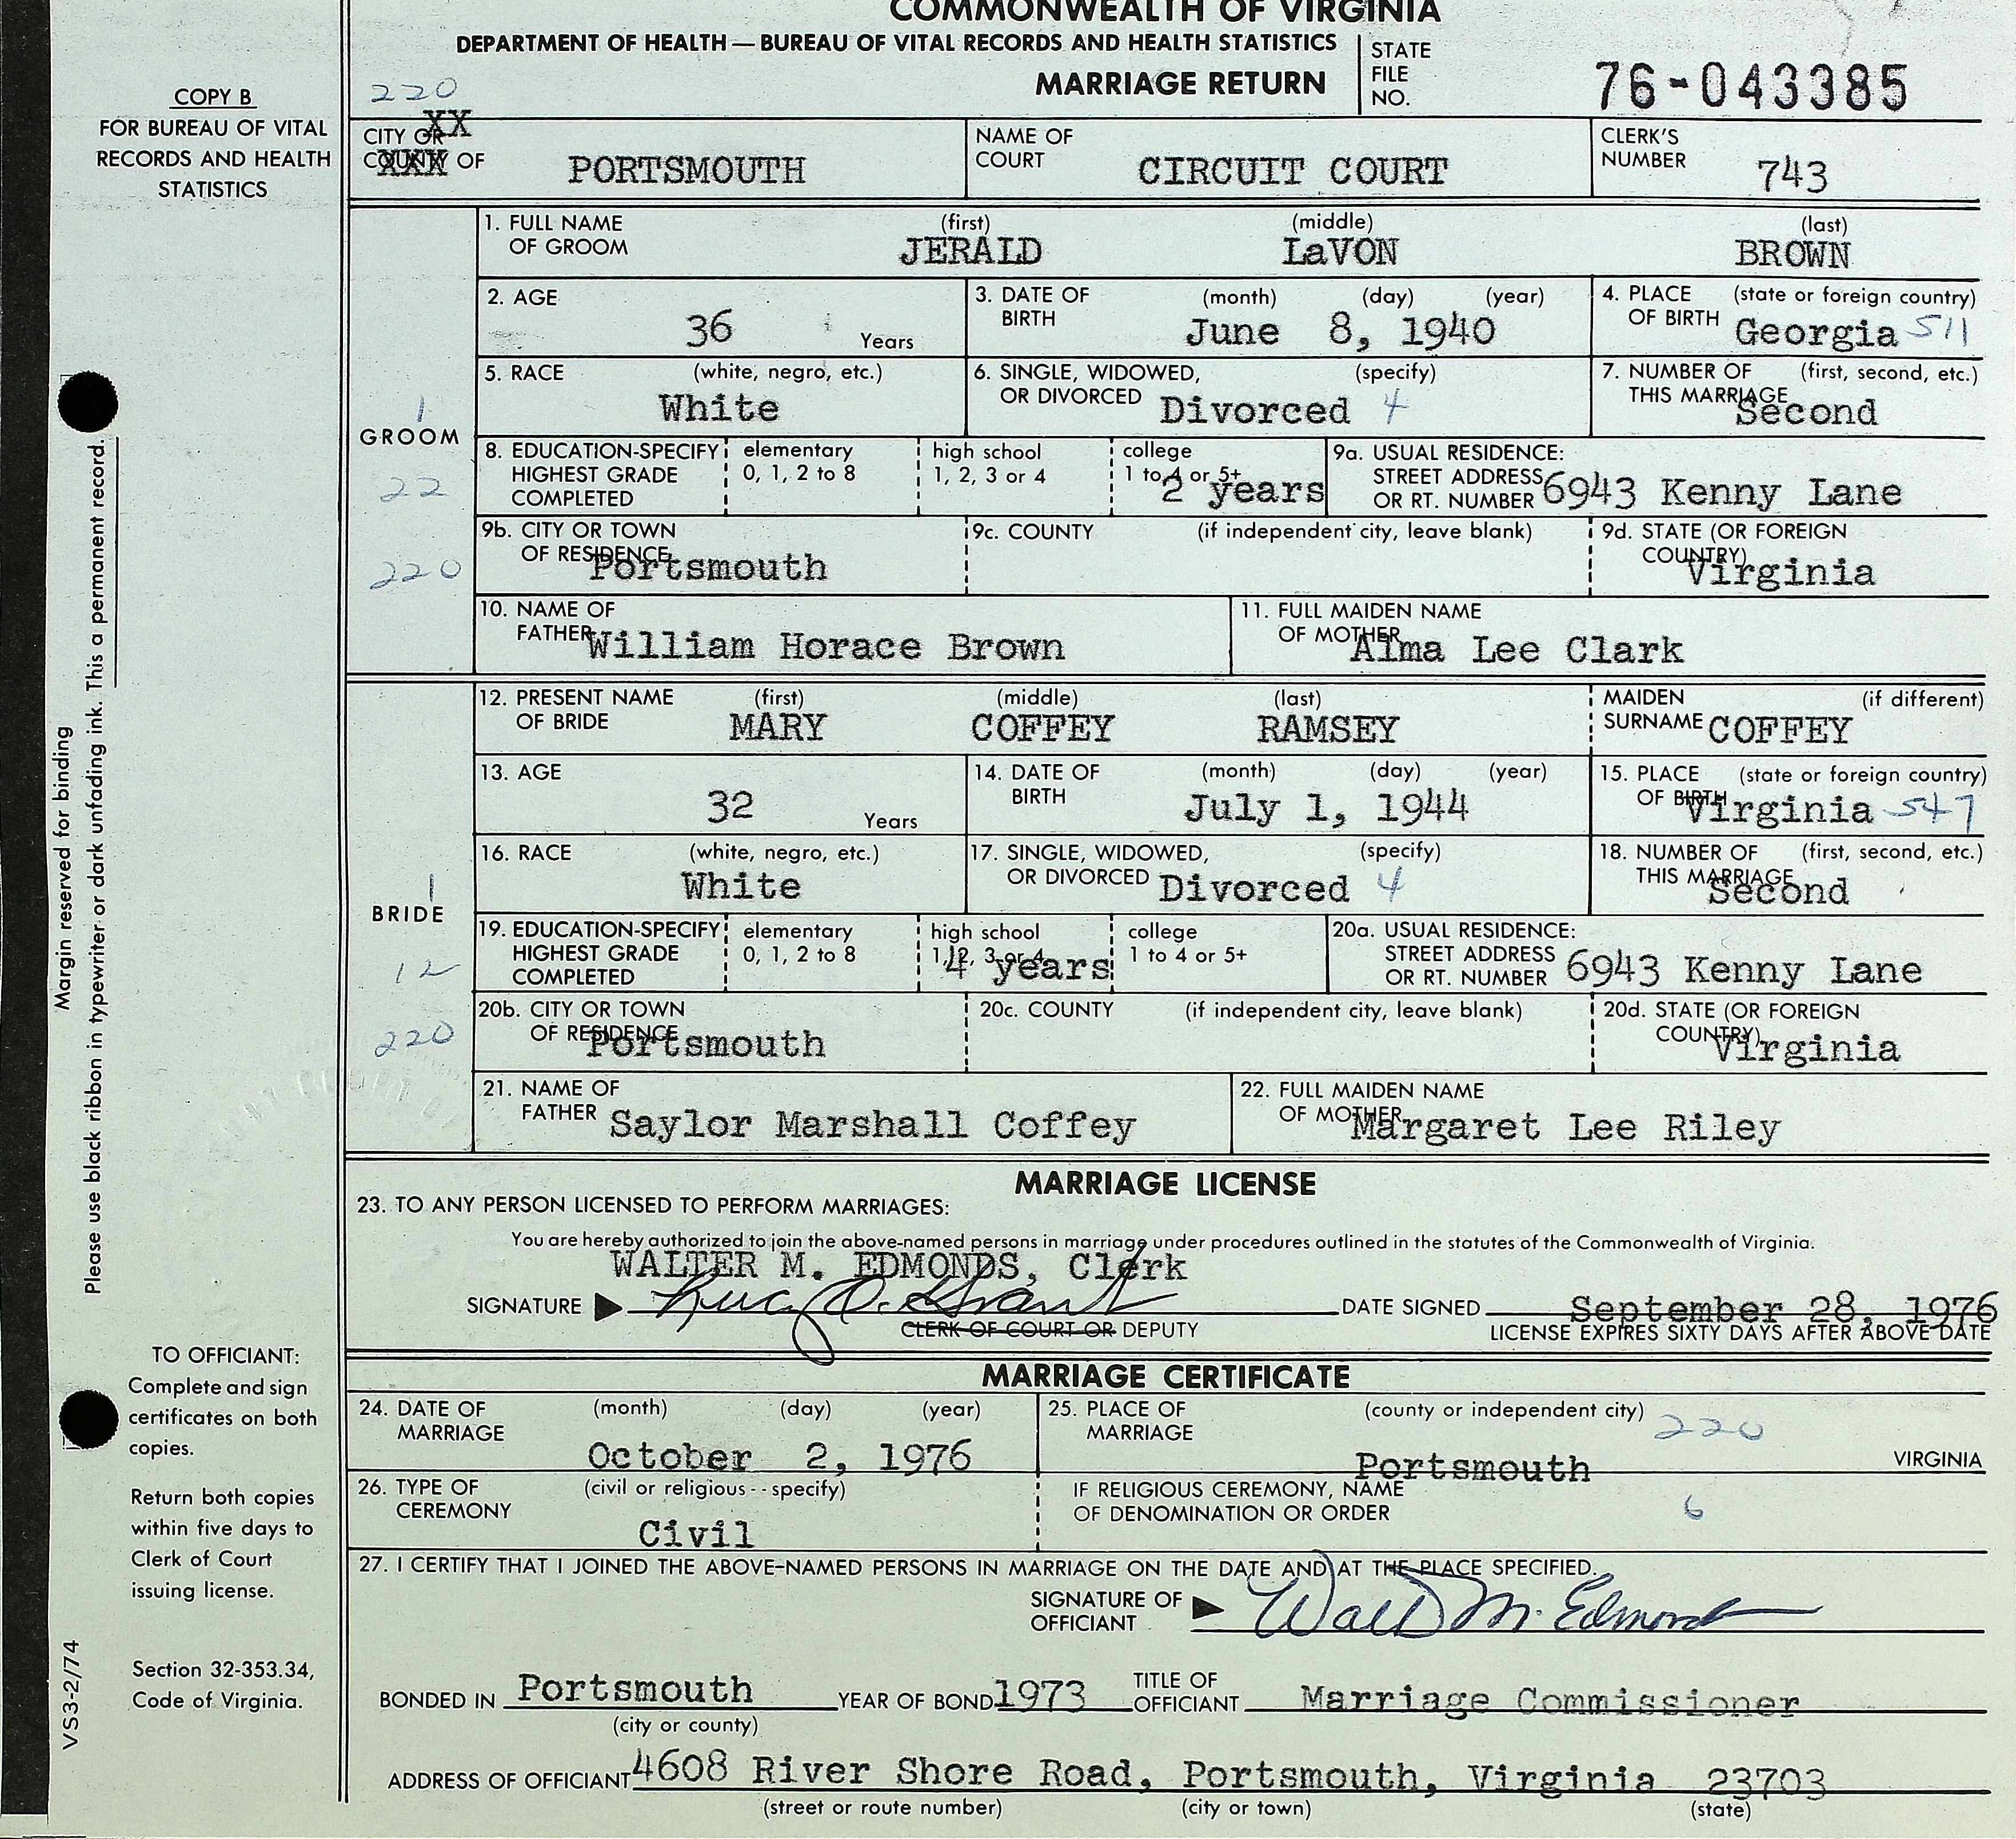 COMMONWEALTH OF VIRGINIA
DEPARTMENT OF HEALTH — BUREAU OF VITAL RECORDS AND HEALTH STATISTICS
MARRIAGE RETURN
STATE FILE NO. 76-043385
COPY B
FOR BUREAU OF VITAL
RECORDS AND HEALTH
STATISTICS
220
CITY OR XX
COUNTY XXX OF PORTSMOUTH
NAME OF COURT CIRCUIT COURT
CLERK'S NUMBER 743
GROOM
1
22
220
1. FULL NAME OF GROOM (first) JERALD (middle) LaVON (last) BROWN
2. AGE 36 Years
3. DATE OF BIRTH (month) (day) (year) June 8, 1940
4. PLACE OF BIRTH (state or foreign country) Georgia 511
5. RACE (white, negro, etc.) White
6. SINGLE, WIDOWED, OR DIVORCED (specify) Divorced 4
7. NUMBER OF THIS MARRIAGE (first, second, etc.) Second
8. EDUCATION-SPECIFY HIGHEST GRADE COMPLETED elementary 0, 1, 2 to 8 high school 1, 2, 3 or 4 college 1 to 4 or 5+ 2 years
9a. USUAL RESIDENCE: STREET ADDRESS OR RT. NUMBER 6943 Kenny Lane
9b. CITY OR TOWN OF RESIDENCE Portsmouth
9c. COUNTY (if independent city, leave blank)
9d. STATE (OR FOREIGN COUNTRY) Virginia
10. NAME OF FATHER William Horace Brown
11. FULL MAIDEN NAME OF MOTHER Alma Lee Clark
BRIDE
1
12
220
12. PRESENT NAME OF BRIDE (first) MARY (middle) COFFEY (last) RAMSEY
MAIDEN SURNAME (if different) COFFEY
13. AGE 32 Years
14. DATE OF BIRTH (month) (day) (year) July 1, 1944
15. PLACE OF BIRTH (state or foreign country) Virginia 547
16. RACE (white, negro, etc.) White
17. SINGLE, WIDOWED, OR DIVORCED (specify) Divorced 4
18. NUMBER OF THIS MARRIAGE (first, second, etc.) Second
19. EDUCATION-SPECIFY HIGHEST GRADE COMPLETED elementary 0, 1, 2 to 8 high school 1, 2, 3 or 4 4 years college 1 to 4 or 5+
20a. USUAL RESIDENCE: STREET ADDRESS OR RT. NUMBER 6943 Kenny Lane
20b. CITY OR TOWN OF RESIDENCE Portsmouth
20c. COUNTY (if independent city, leave blank)
20d. STATE (OR FOREIGN COUNTRY) Virginia
21. NAME OF FATHER Saylor Marshall Coffey
22. FULL MAIDEN NAME OF MOTHER Margaret Lee Riley
MARRIAGE LICENSE
23. TO ANY PERSON LICENSED TO PERFORM MARRIAGES:
You are hereby authorized to join the above-named persons in marriage under procedures outlined in the statutes of the Commonwealth of Virginia.
WALTER M. EDMONDS, Clerk
SIGNATURE Lucy O. Grant DATE SIGNED September 28, 1976
CLERK OF COURT OR DEPUTY
LICENSE EXPIRES SIXTY DAYS AFTER ABOVE DATE
MARRIAGE CERTIFICATE
24. DATE OF MARRIAGE (month) (day) (year) October 2, 1976
25. PLACE OF MARRIAGE (county or independent city) 220 Portsmouth VIRGINIA
26. TYPE OF CEREMONY (civil or religious -- specify) Civil
IF RELIGIOUS CEREMONY, NAME OF DENOMINATION OR ORDER 6
27. I CERTIFY THAT I JOINED THE ABOVE-NAMED PERSONS IN MARRIAGE ON THE DATE AND AT THE PLACE SPECIFIED.
SIGNATURE OF OFFICIANT Walter M. Edmonds
BONDED IN Portsmouth YEAR OF BOND 1973 TITLE OF OFFICIANT Marriage Commissioner
(city or county)
ADDRESS OF OFFICIANT 4608 River Shore Road, Portsmouth, Virginia 23703
(street or route number) (city or town) (state)
Margin reserved for binding
Please use black ribbon in typewriter or dark unfading ink. This a permanent record.
TO OFFICIANT:
Complete and sign
certificates on both
copies.
Return both copies
within five days to
Clerk of Court
issuing license.
Section 32-353.34,
Code of Virginia.
VS3-2/74